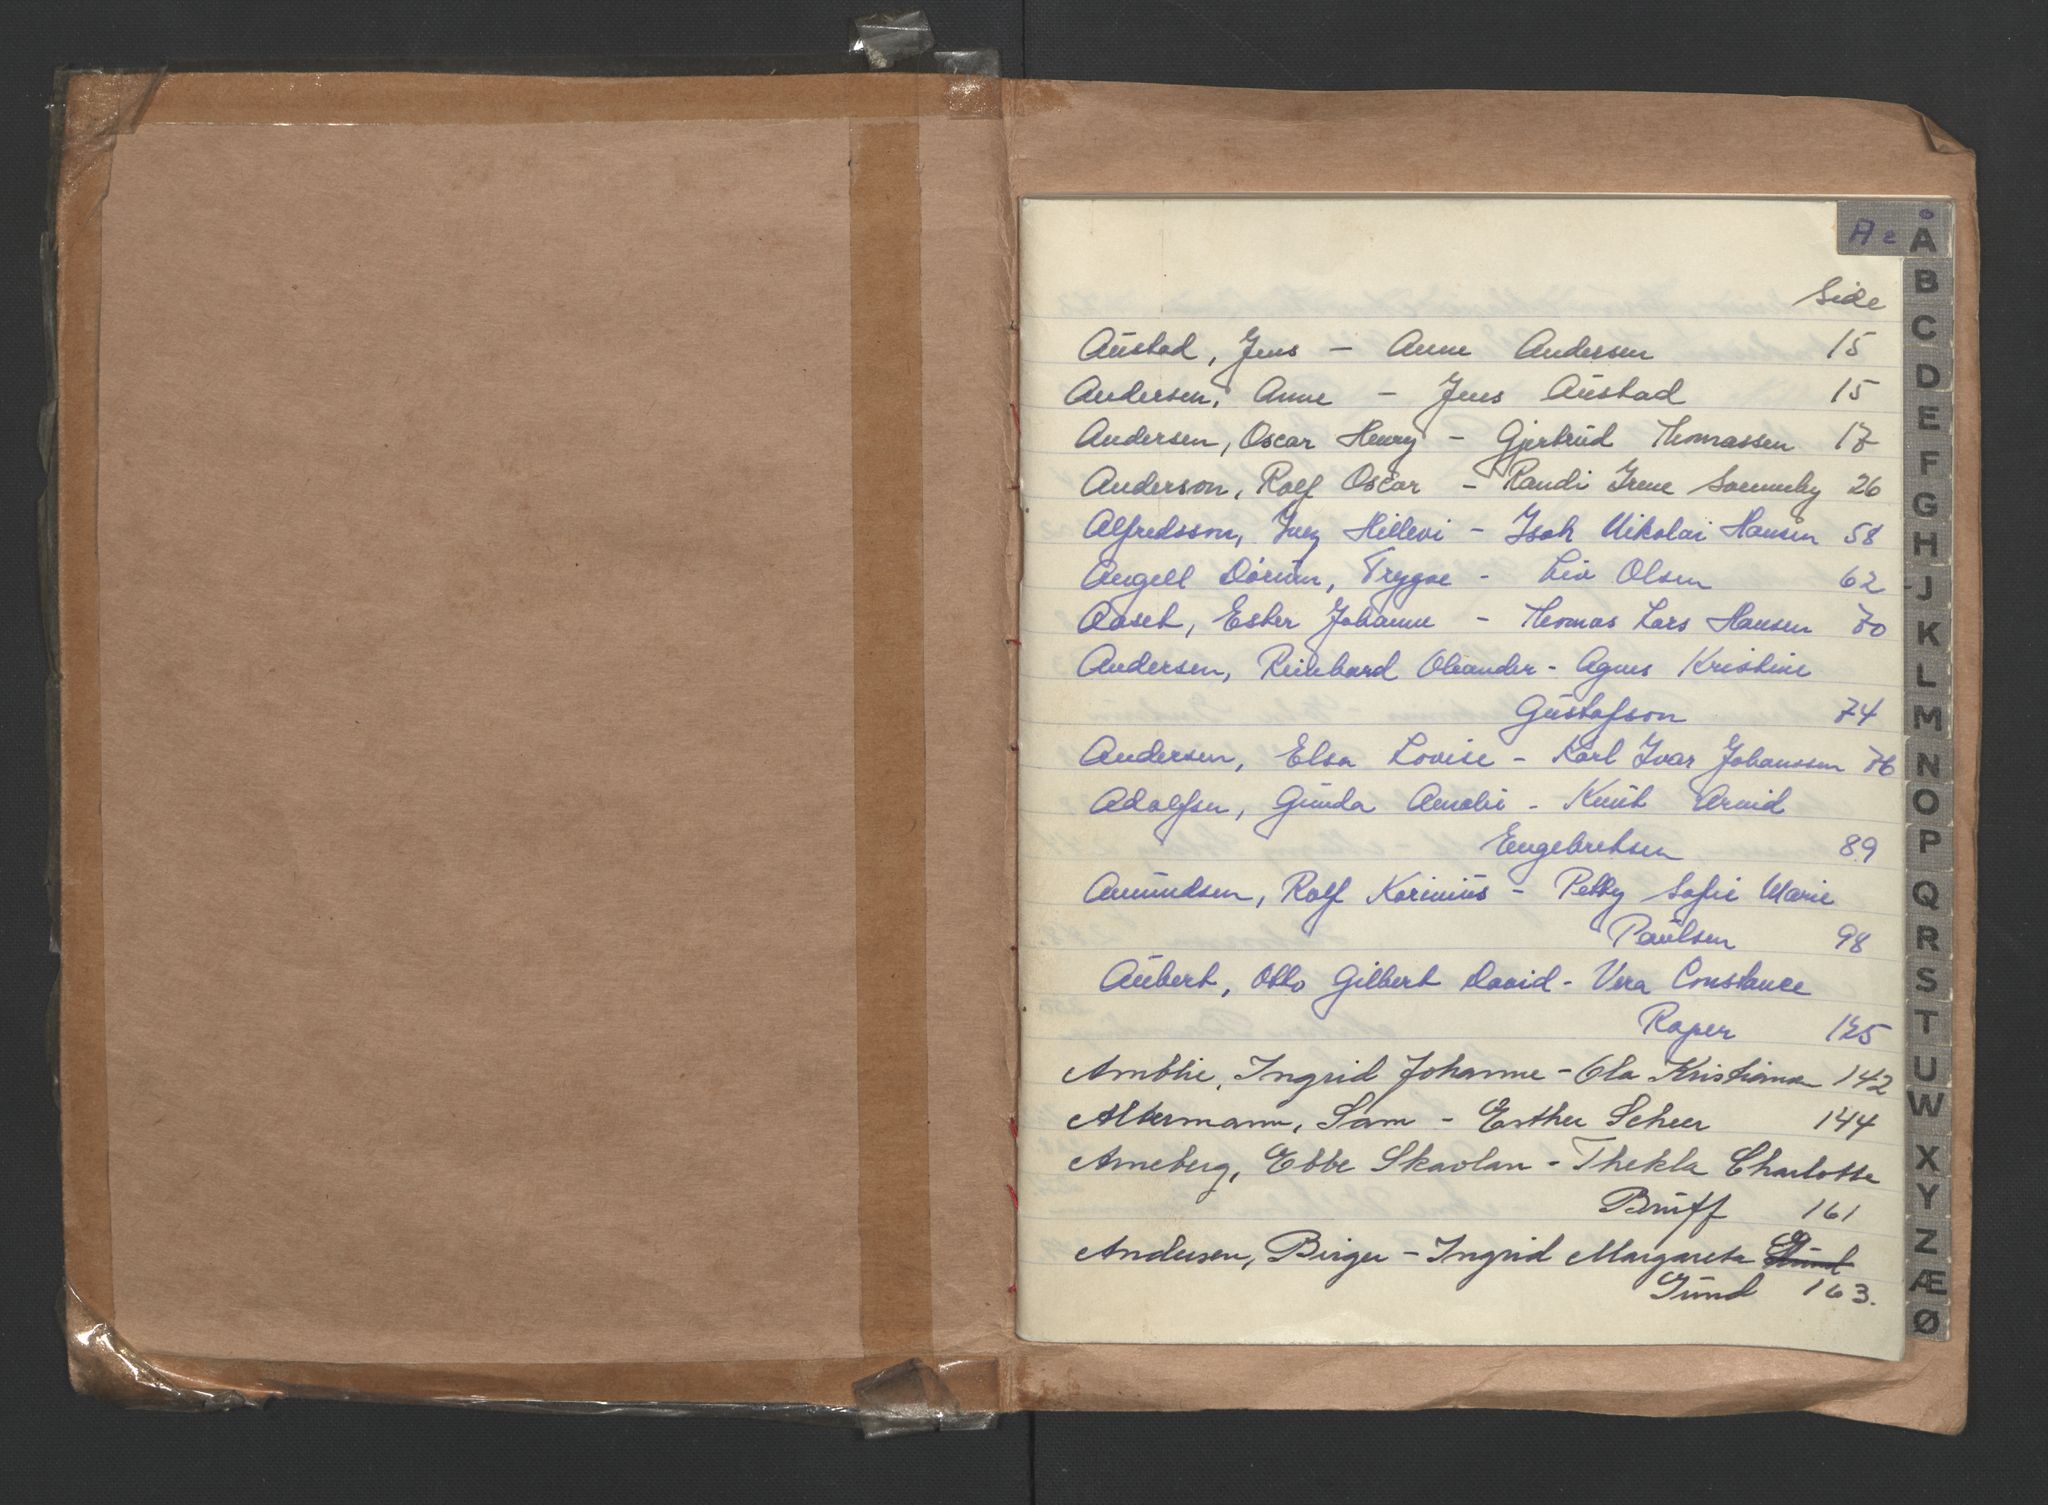 A
Å
B
C
D
E
F
G
H
J
K
L
M
N
O
P
Q
R
S
T
U
W
X
Y
Z
Æ
Ø
Side
Aŭstad, Jens - Anne Andersen 15
Andersen, Anne - Jens Aŭstad 15
Andersen, Oscar Henry - Gjertrŭd Thomassen 17
Anderson, Rolf Oscar - Randi Irene 26
Alfredsson, Hillevi - Isak Nikolai Hansen 58
Angell Dørŭm, Trygve - Liv Olsen 62
Aaset, Ester Johanne - Thomas Lars Hansen 70
Andersen, Reinhard Oleander - Agnes Kristine
Gŭstafson 74
Andersen, Elsa Lovise - Karl Ivar Johanssen 76
Adolfsen, Gŭnda Amalie - Knŭt Arvid
Engebretsen 89
Amŭndsen, Rolf Karinius - Petty Sofie Marie
Paŭlsen 98
Aŭbert, Otto Gilbert David - Vera Constance
Raper 125
Ingrid Johanne - Ola Kristiansen 142
Altermann, Sam - Esther Scheer 144
Arneberg, Ebbe Skavlan - Thekla Charlotte
Brŭff 161
Andersen, Birger - Ingrid Margareta
163.